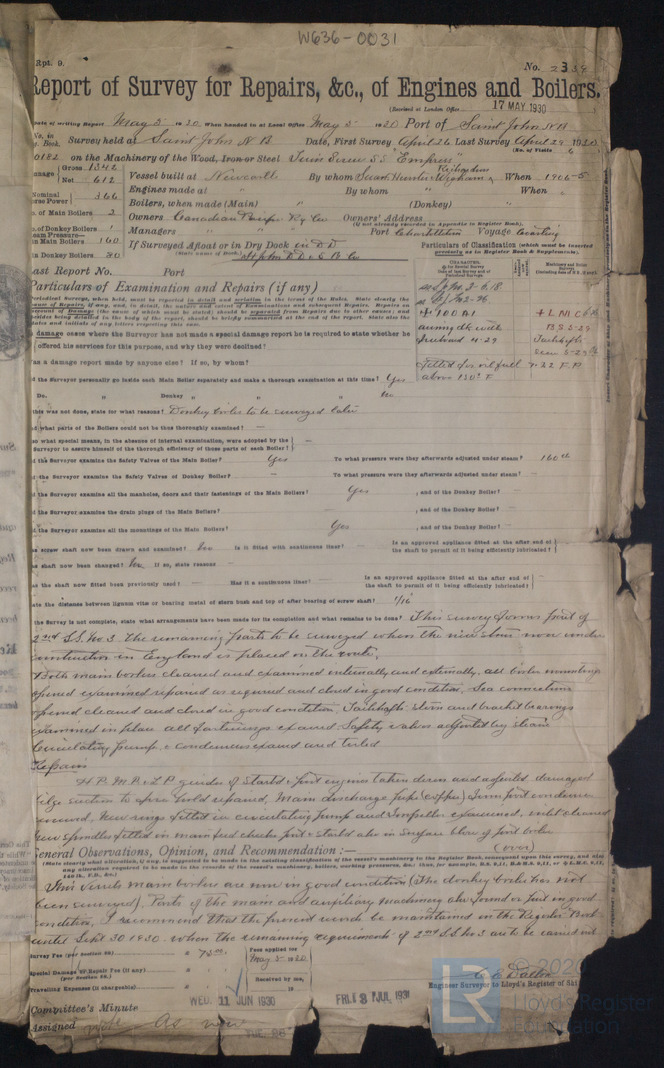 W636-0031
Rpt. 9.
No. 2339
Report of Survey for Repairs, &c., of Engines and Boilers.
(Received at London Office 17 MAY 1930
Date of writing Report May 5 1930 When handed in at Local Office May 5 1930 Port of Saint John N B
No. in Reg. Book. Survey held at Saint John N B Date, First Survey April 26 Last Survey April 29 1930
(No. of Visits 6
on the Machinery of the Wood, Iron or Steel Twin Screw SS "Empress"
Gross 1342
Net 612
Vessel built at Newcastle By whom Swan Hunter Wigham Richardson When 1906-5
Nominal Horse Power 366
Engines made at " By whom " When "
Boilers, when made (Main) (Donkey)
No. of Main Boilers 2
Owners Canadian Pacific Ry Co Owners' Address
(if not already recorded in Appendix to Register Book).
No. of Donkey Boilers 1
Managers Port Charlottetown Voyage Coasting
Steam Pressure—
in Main Boilers 160
If Surveyed Afloat or in Dry Dock in D D
(State name of Dock) St John D D & S B Co
in Donkey Boilers 70
Particulars of Classification (which must be inserted precisely as in Register Book & Supplements).
Last Report No. Port
Particulars of Examination and Repairs (if any)
+ 100 A1
+ L M C
awning dk with
freeboard 4-29
fitted for oil fuel 7-22 F.P.
above 150° F
damage cases where the Surveyor has not made a special damage report he is required to state whether he offered his services for this purpose, and why they were declined?
Was a damage report made by anyone else? If so, by whom?
Did the Surveyor personally go inside each Main Boiler separately and make a thorough examination at this time? Yes
Do. " Donkey " " " no
If this was not done, state for what reasons? Donkey boiler to be surveyed later
And what parts of the Boilers could not be thus thoroughly examined? —
Also what special means, in the absence of internal examination, were adopted by the Surveyor to assure himself of the thorough efficiency of those parts of each Boiler? —
Did the Surveyor examine the Safety Valves of the Main Boiler? Yes To what pressure were they afterwards adjusted under steam? 160 lb
Did the Surveyor examine the Safety Valves of Donkey Boiler? — To what pressure were they afterwards adjusted under steam? —
Did the Surveyor examine all the manholes, doors and their fastenings of the Main Boilers? Yes , and of the Donkey Boiler? —
Did the Surveyor examine the drain plugs of the Main Boilers? — , and of the Donkey Boiler? —
Did the Surveyor examine all the mountings of the Main Boilers? Yes , and of the Donkey Boiler? —
Has screw shaft now been drawn and examined? no Is it fitted with continuous liner? — Is an approved appliance fitted at the after end of the shaft to permit of it being efficiently lubricated? —
Has shaft now been changed? no If so, state reasons —
Has the shaft now fitted been previously used? — Has it a continuous liner? — Is an approved appliance fitted at the after end of the shaft to permit of it being efficiently lubricated? —
State the distance between lignum vitæ or bearing metal of stern bush and top of after bearing of screw shaft? 1/16
If the Survey is not complete, state what arrangements have been made for its completion and what remains to be done? This survey forms part of
2nd S.S. No 3 the remaining parts to be surveyed when the new stmr now under
construction in England is placed on the route.
Both main boilers cleaned and examined internally and externally, all boiler mountings
opened examined repaired as required and closed in good condition, Sea connections
opened cleaned and closed in good condition, Tailshafts stern and bracket bearings
examined in place all fastenings examd Safety valves adjusted by steam
Circulating pump & condensers examd and tested
Repairs
H.P. M.P. & L.P. guides of starbd & port engines taken down and adjusted, damaged
bilge suction to after hold repaired, Main discharge pipe (copper) from port condenser
renewed, New rings fitted in circulating pump and impeller examined, inlet cleaned
new spindles fitted in main feed checks port & starbd also in surface blow of port boiler
(over)
General Observations, Opinion, and Recommendation:—
This vessels main boilers are now in good condition (The donkey boiler has not
been surveyed). Parts of the main and auxiliary machinery also found or put in good
condition. I recommend that the present record be maintained in the Register Book
until Sept 30 1930 when the remaining requirements of 2nd S.S. No 3 are to be carried out
Survey Fee (per Section 29) $ 75.00 Fees applied for May 5 1930
Special Damage or Repair Fee (if any) (per Section 29.)
Travelling Expenses (if chargeable) Received by me,
Engineer Surveyor to Lloyd's Register of
WED. 11 JUN 1930
FRI. 3 JUL 1931
Committee's Minute
Assigned As now
© 2020
Lloyd's Register
Foundation